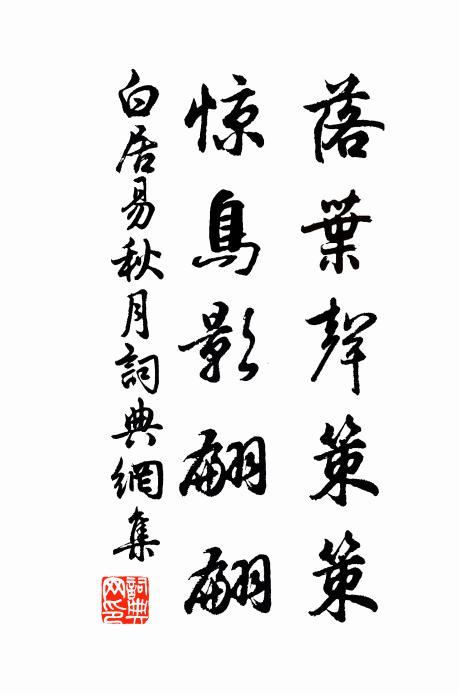 落葉聲策策
惊鳥影翩翩
白居易秋月詞典網集
詞典网印